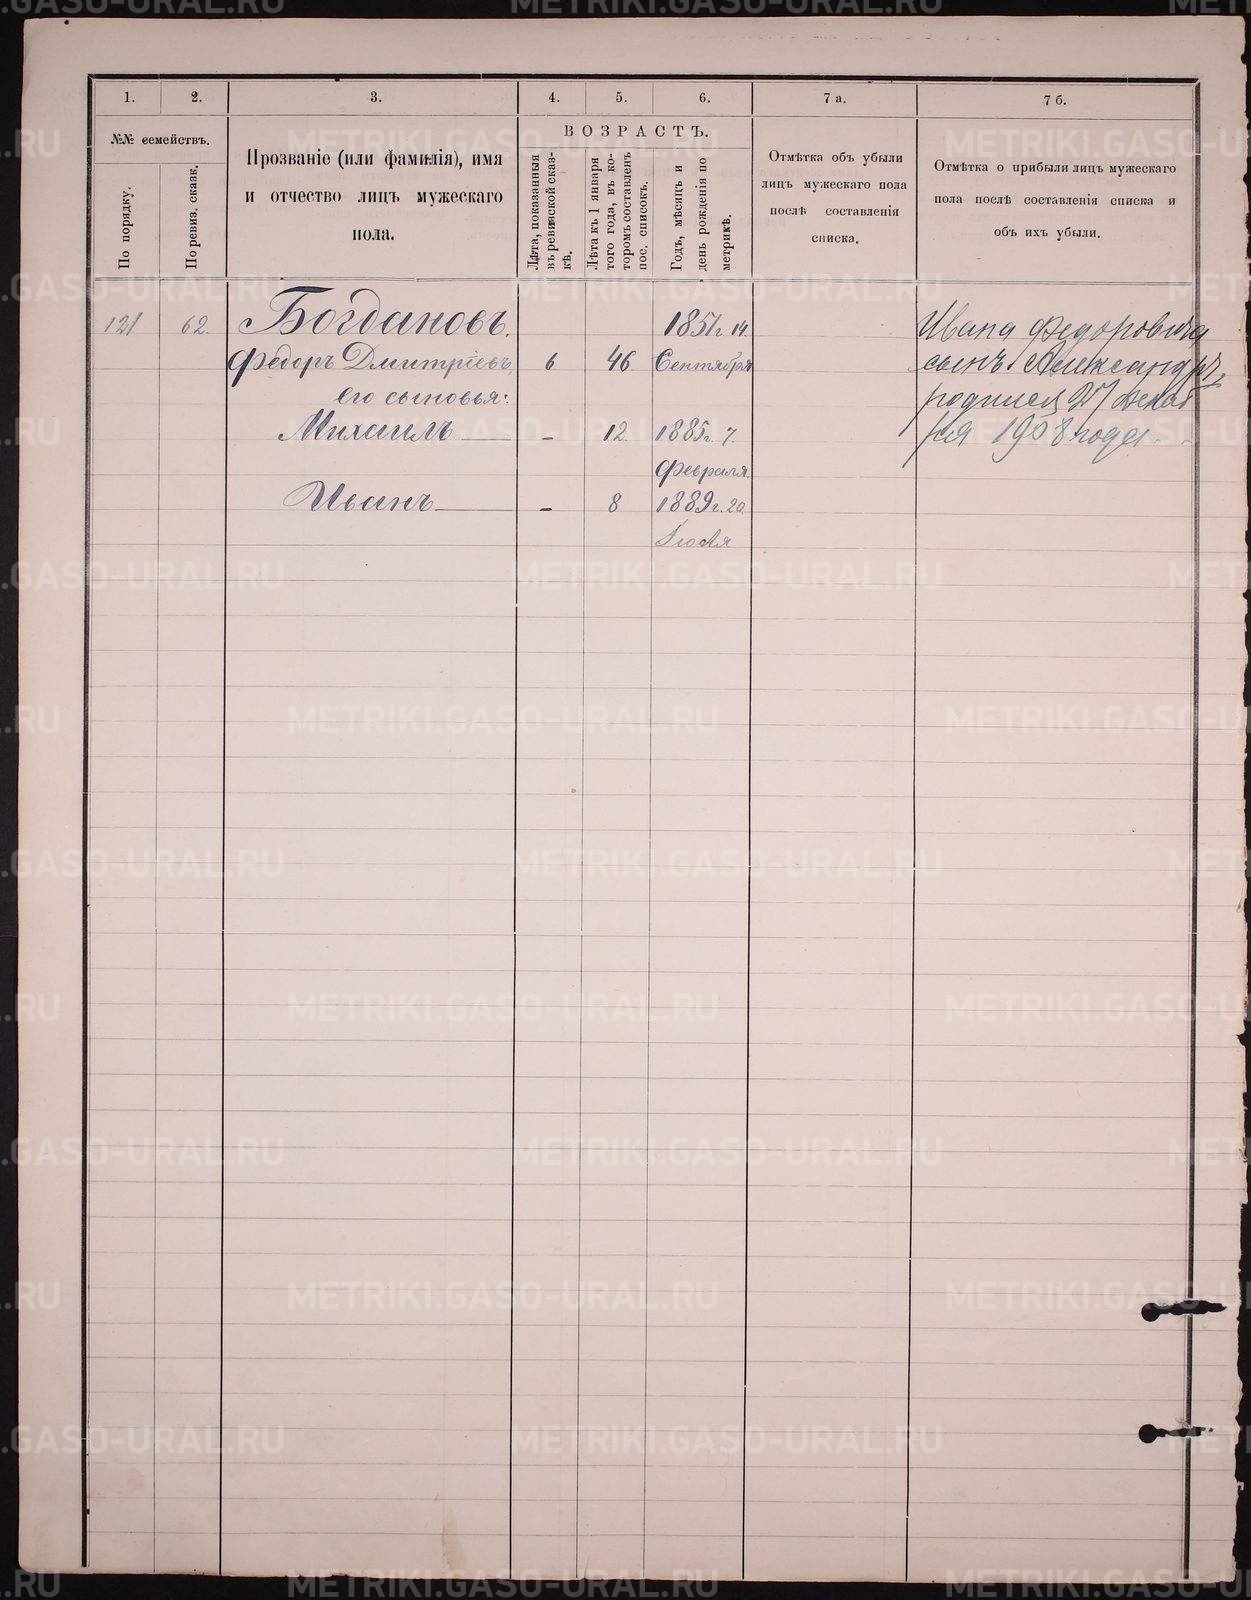 1.
2.
3.
4.
5.
6.
7 а.
7 б.
№№ семействъ.
По порядку.
По ревиз. сказк.
Прозваніе (или фамилія), имя
и отчество лицъ мужескаго
пола.
ВОЗРАСТЪ.
Лѣта, показанныя
въ ревизской сказ-
кѣ.
Лѣта къ 1 января
того года, въ ко-
торомъ составленъ
пос. списокъ.
Годъ, мѣсяцъ и
день рожденія по
метрикѣ.
Отмѣтка объ убыли
лицъ мужескаго пола
послѣ составленія
списка.
Отмѣтка о прибыли лицъ мужескаго
пола послѣ составленія списка и
объ ихъ убыли.
121 62. Богдановъ. 1851 г. 14.
Федоръ Дмитріевъ, 6 46 Сентября
его сыновья:
Михаилъ — - 12. 1885 г. 7.
Февраля.
Иванъ — - 8 1889 г. 20
Іюля
Ивана Федоровича
сынъ Александръ,
родился 27 декаб
ря 1908 года.
METRIKI.GASO-URAL.RU